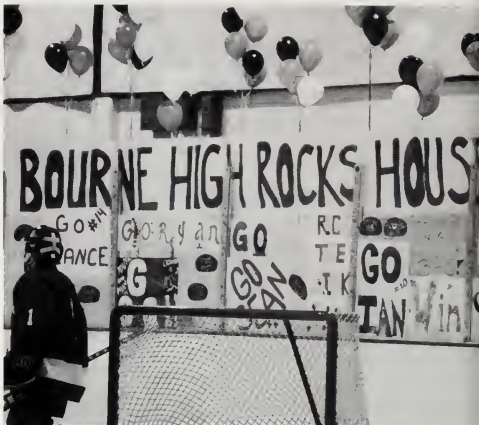 BOURNE HIGH ROCKS HOUS
GO #14
ANCE
GO RYAN
G
GO
GO
SEAN
RC
TE
IK
GO
IAN
Win
1